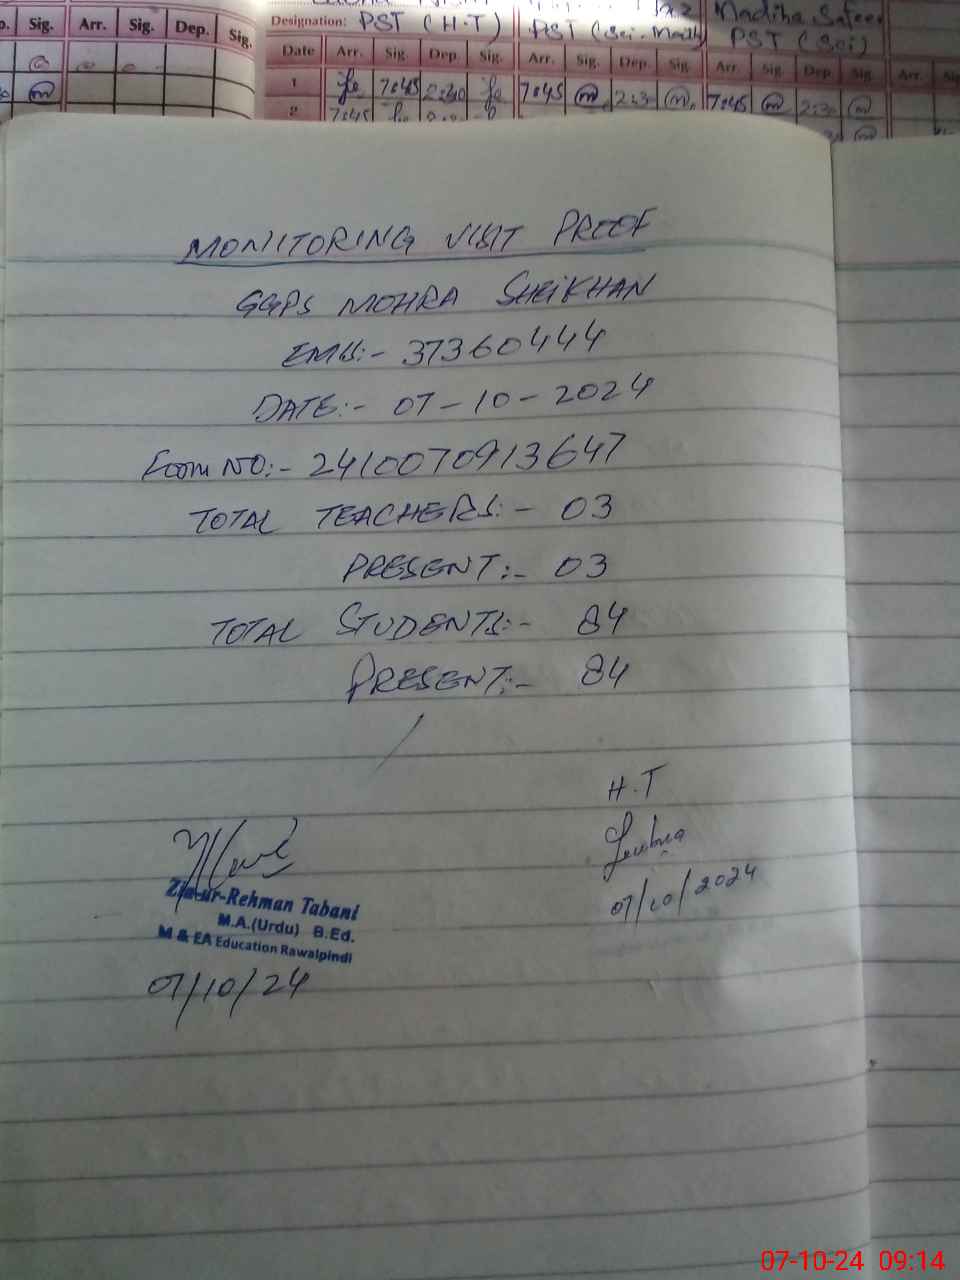 Sig. Arr. Sig. Dep. Sig.
Designation: PST (H.T) PST (Sci. Math) Madiha Safeer
PST (Sci)
Date Arr. Sig. Dep. Sig. Arr. Sig. Dep. Sig. Arr. Sig. Dep. Sig. Arr.
1 7:45 2:30 7:45 2:30 7:45 2:30
2 7:45
MONITORING VISIT PROOF
GGPS MOHRA SHEIKHAN
EMIS:- 37360444
DATE:- 07-10-2024
Form NO:- 2410070913647
TOTAL TEACHERS:- 03
PRESENT:- 03
TOTAL STUDENTS:- 84
PRESENT:- 84
H.T
Lubna
07/10/2024
Zia-ur-Rehman Tabani
M.A.(Urdu) B.Ed.
M & EA Education Rawalpindi
07/10/24
07-10-24 09:14